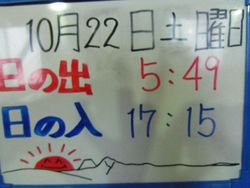 10月22日土曜日
日の出 5:49
日の入 17:15